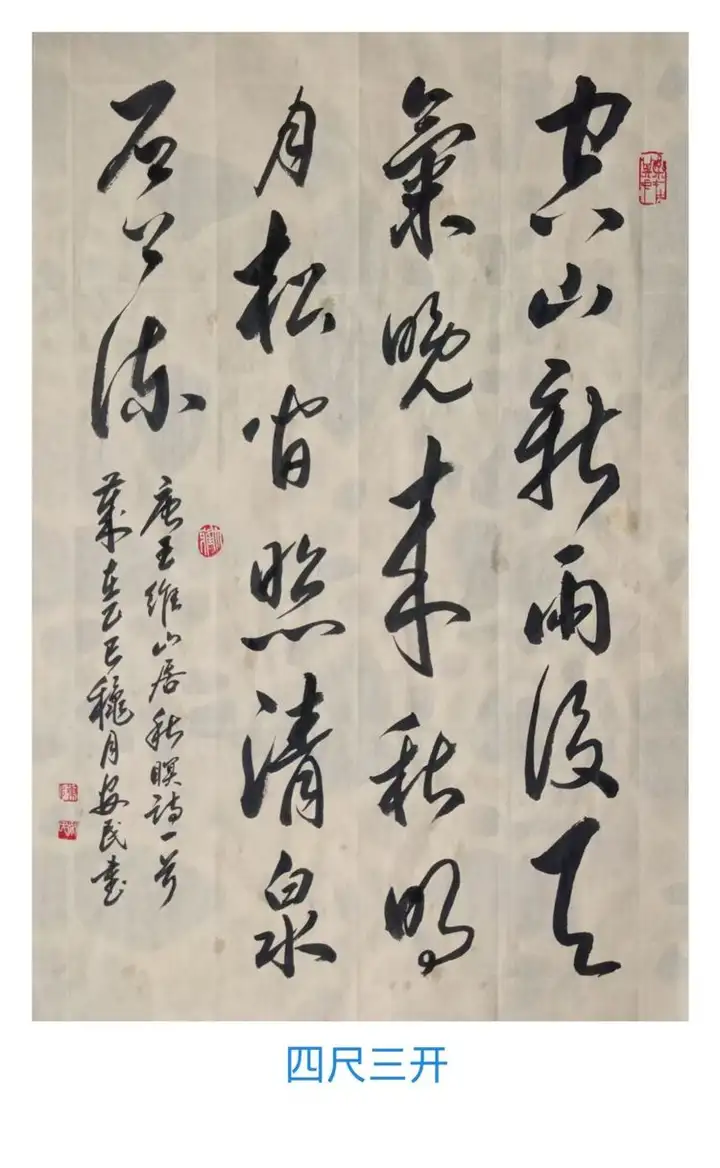 空山新雨後天
氣晚来秋明
月松间照清泉
石上流
唐王維山居秋暝詩一首
歲在乙巳穐月安民書
四尺三开